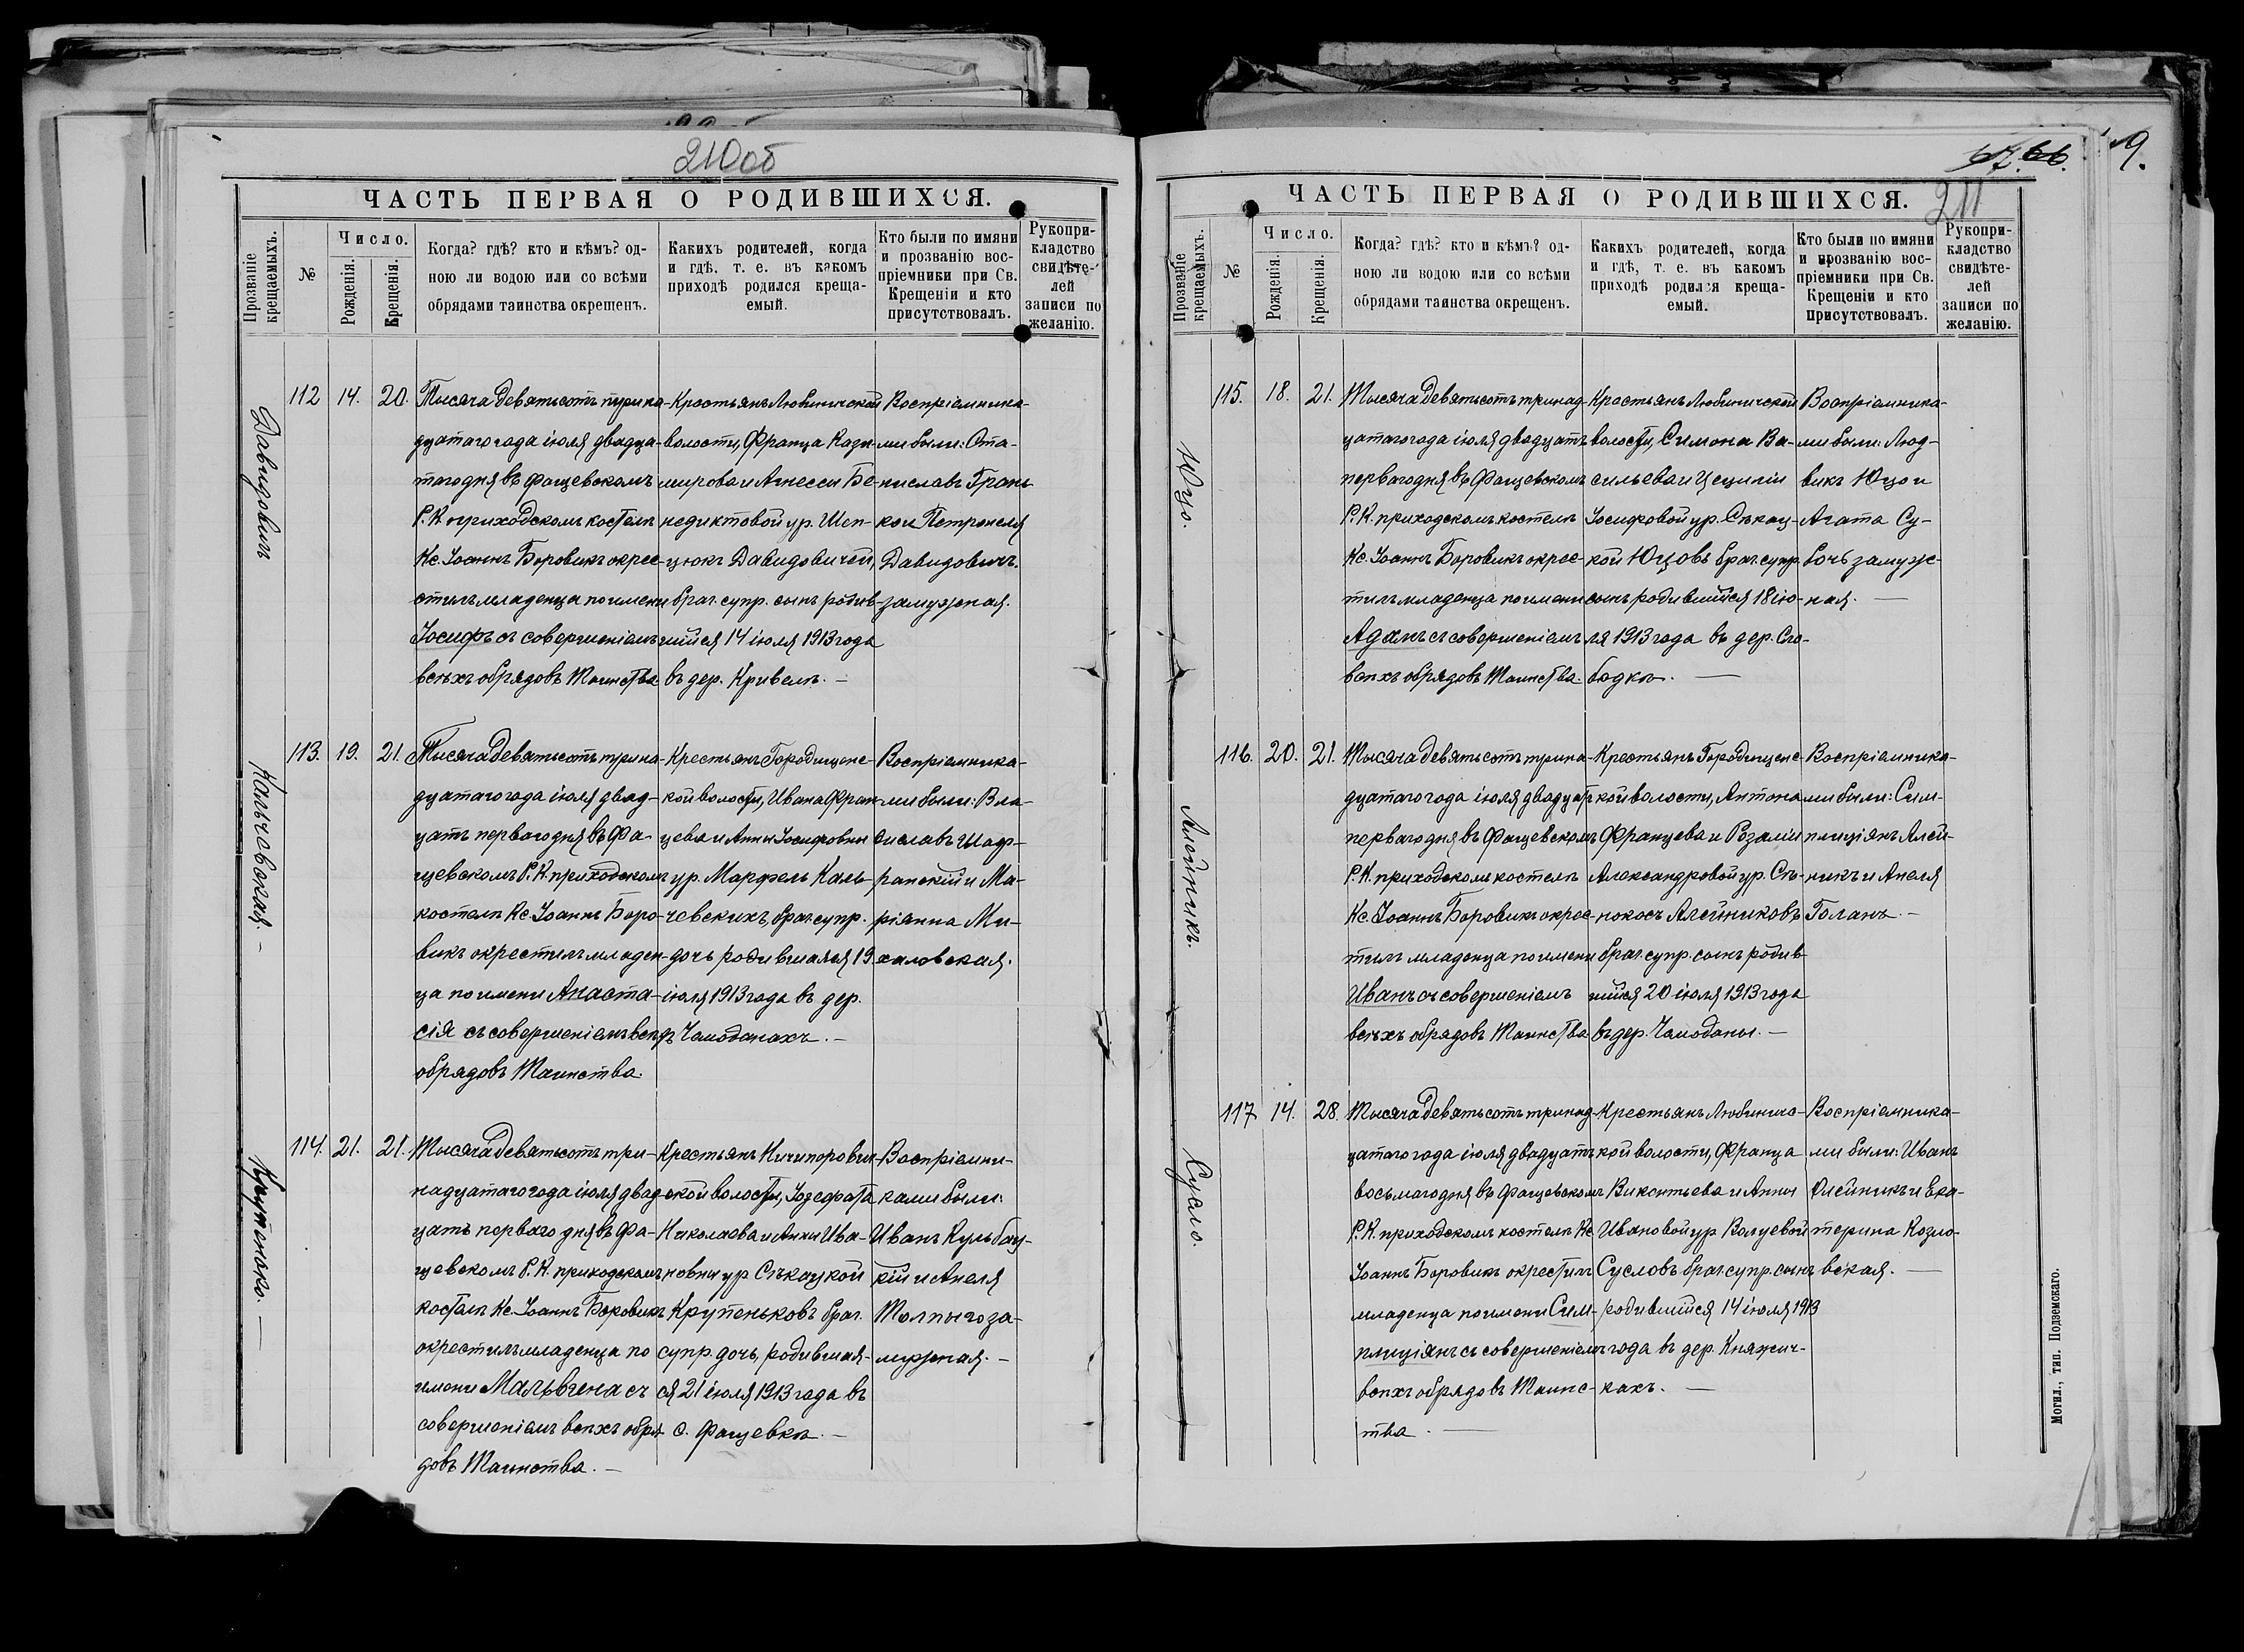 210об
ЧАСТЬ ПЕРВАЯ О РОДИВШИХСЯ.
Прозваніе крещаемыхъ.
№
Число.
Рожденія.
Крещенія.
Когда? гдѣ? кто и кѣмъ? од-
ною ли водою или со всѣми
обрядами таинства окрещенъ.
Какихъ родителей, когда
и гдѣ, т. е. въ какомъ
приходѣ родился креща-
емый.
Кто были по имяни
и прозванію вос-
пріемники при Св.
Крещеніи и кто
присутствовалъ.
Рукопри-
кладство
свидѣте-
лей
записи по
желанію.
Давидовичъ
112 14. 20.
Тысяча девятьсотъ трина-
дцатаго года іюля двадца-
таго дня въ Фащевскомъ
Р. К. приходскомъ костелѣ
Кс. Іоаннъ Боровикъ окрес-
стилъ младенца по имени
Іосифъ съ совершеніемъ
всѣхъ обрядовъ Таинства
Крестьянъ Любиничской
волости, Франца Кази-
мирова и Агнессы Бе-
недиктовой ур. Шеп-
цюкъ Давидовичей,
брач. супр. сынъ родив-
шійся 14 іюля 1913 года
въ дер. Кривелѣ. —
Воспріемника-
ми были: Ста-
ниславъ Грань-
ко и Петронеля
Давидовичъ.
замужная.
Кальчевская. —
113. 19. 21.
Тысяча девятьсотъ трина-
дцатаго года іюля двад-
цать перваго дня въ Фа-
щевскомъ Р. К. приходскомъ
костелѣ Кс. Іоаннъ Боро-
викъ окрестилъ младен-
ца по имени Анаста-
сія съ совершеніемъ всѣхъ
обрядовъ Таинства.
Крестьянъ Городищенс-
кой волости, Ивана Фран-
цева и Анны Іосифовны
ур. Марфель Каль-
чевскихъ, брач. супр.
дочь родившаяся 19
іюля 1913 года въ дер.
Чамоданахъ. —
Воспріемника-
ми были: Вла-
диславъ Шаф-
ранскій и Ма-
ріанна Ми-
халовская.
Крупенько. —
114. 21. 21.
Тысяча девятьсотъ три-
надцатаго года іюля двад-
цать перваго дня въ Фа-
щевскомъ Р. К. приходскомъ
костелѣ Кс. Іоаннъ Боровикъ
окрестилъ младенца по
имени Мальвина съ
совершеніемъ всѣхъ обря-
довъ Таинства. —
Крестьянъ Ничипорович-
ской волости, Іозефата
Николаева и Анны Ива-
новны ур. Сѣкацкой
Крупеньковъ брач.
супр. дочь, родившая-
ся 21 іюля 1913 года въ
с. Фащевкѣ. —
Воспріемни-
ками были:
Иванъ Кульбац-
кій и Анеля
Толпыго за-
мужная. —
67. 66.
9.
211
ЧАСТЬ ПЕРВАЯ О РОДИВШИХСЯ.
Прозваніе крещаемыхъ.
№
Число.
Рожденія.
Крещенія.
Когда? гдѣ? кто и кѣмъ? од-
ною ли водою или со всѣми
обрядами таинства окрещенъ.
Какихъ родителей, когда
и гдѣ, т. е. въ какомъ
приходѣ родился креща-
емый.
Кто были по имяни
и прозванію вос-
пріемники при Св.
Крещеніи и кто
присутствовалъ.
Рукопри-
кладство
свидѣте-
лей
записи по
желанію.
Юцо.
115. 18. 21.
Тысяча девятьсотъ тринад-
цатаго года іюля двадцать
перваго дня въ Фащевскомъ
Р. К. приходскомъ костелѣ
Кс. Іоаннъ Боровикъ окрес-
тилъ младенца по имени
Адамъ съ совершеніемъ
всѣхъ обрядовъ Таинства.
Крестьянъ Любиничской
волости, Симона Ва-
сильева и Цециліи
Іосифовой ур. Сѣкац-
кой Юцовъ брач. супр.
сынъ родившійся 18 ію-
ля 1913 года въ дер. Сло-
бодкѣ. —
Воспріемника-
ми были: Люд-
викъ Юцо и
Агата Су-
бочь замуж-
ная. —
Алейникъ.
116. 20. 21.
Тысяча девятьсотъ трина-
дцатаго года іюля двадцать
перваго дня въ Фащевскомъ
Р. К. приходскомъ костелѣ
Кс. Іоаннъ Боровикъ окрес-
тилъ младенца по имени
Иванъ съ совершеніемъ
всѣхъ обрядовъ Таинства
Крестьянъ Городищенс-
кой волости, Антона
Францева и Розаліи
Александровой ур. Сѣ-
нокосъ Алейниковъ
брач. супр. сынъ родив-
шійся 20 іюля 1913 года
въ дер. Чамоданы. —
Воспріемника-
ми были: Сим-
плиціянъ Алей-
никъ и Анеля
Голанъ. —
Сусло.
117 14. 28.
Тысяча девятьсотъ тринад-
цатаго года іюля двадцать
восьмаго дня въ Фащевскомъ
Р. К. приходскомъ костелѣ Кс
Іоаннъ Боровикъ окрестилъ
младенца по имени Сим-
плиціянъ съ совершеніемъ
всѣхъ обрядовъ Таинс-
тва. —
Крестьянъ Любинич-
кой волости, Франца
Викентьева и Анны
Ивановой ур Валуевой
Сусловъ брач. супр. сынъ
родившійся 14 іюля 1913
года въ дер. Княжич-
кахъ. —
Воспріемника-
ми были: Иванъ
Олейникъ и Ека-
терина Козло-
вская. —
Могил., тип. Подземскаго.